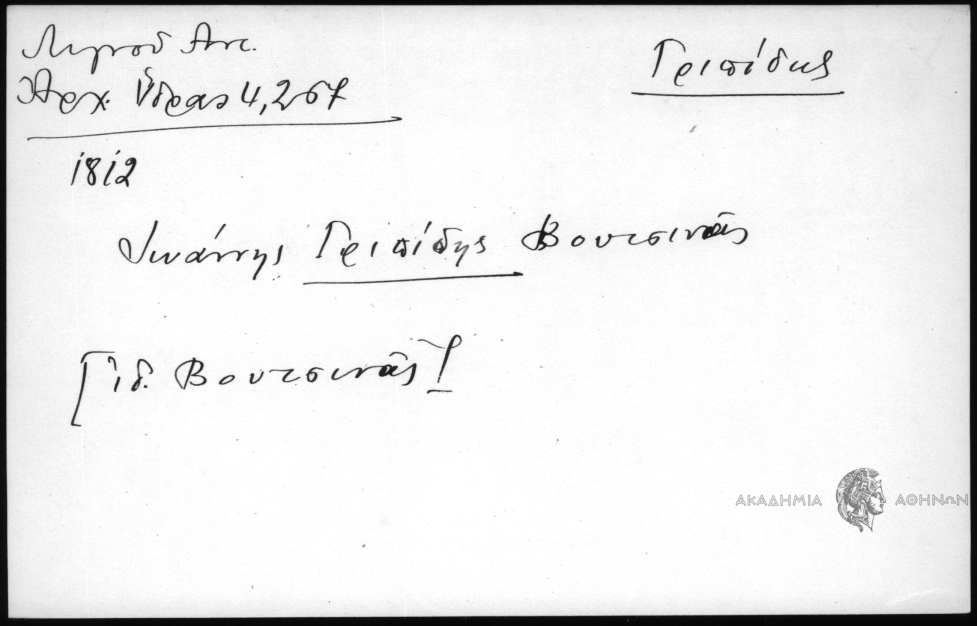 Λιγνοῦ Ἀντ.
Ἀρχ. Ὕδρας 4, 267
Γριπίδης
1812
Ἰωάννης Γριπίδης Βουτσινᾶς
[ἰδ. Βουτσινᾶς]
ΑΚΑΔΗΜΙΑ ΑΘΗΝΩΝ